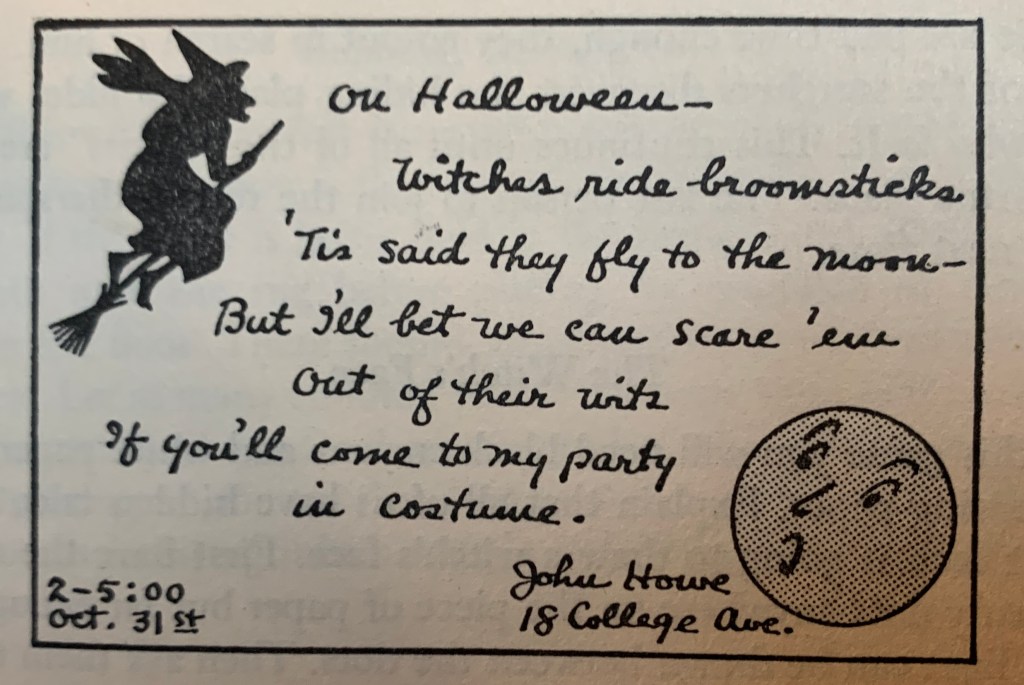 On Halloween—
Witches ride broomsticks
'Tis said they fly to the moon—
But I'll bet we can scare 'em
out of their wits
If you'll come to my party
in costume.
John Howe
18 College Ave.
2-5:00
Oct. 31st